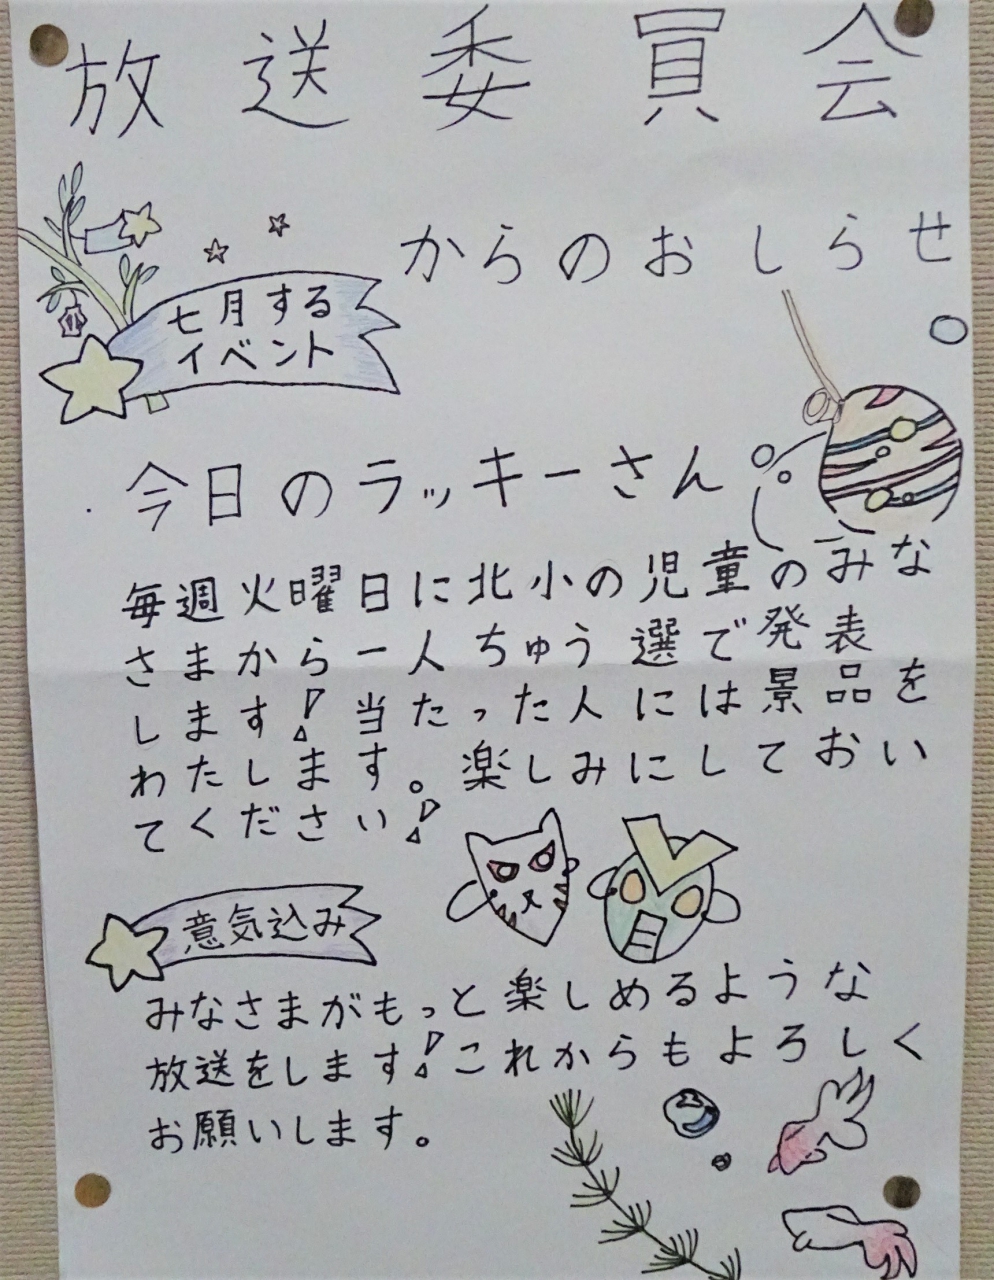 放送委員会
からのおしらせ
七月する
イベント
今日のラッキーさん
毎週火曜日に北小の児童のみな
さまから一人ちゅう選で発表
します!当たった人には景品を
わたします。楽しみにしておい
てください!
意気込み
みなさまがもっと楽しめるような
放送をします!これからもよろしく
お願いします。